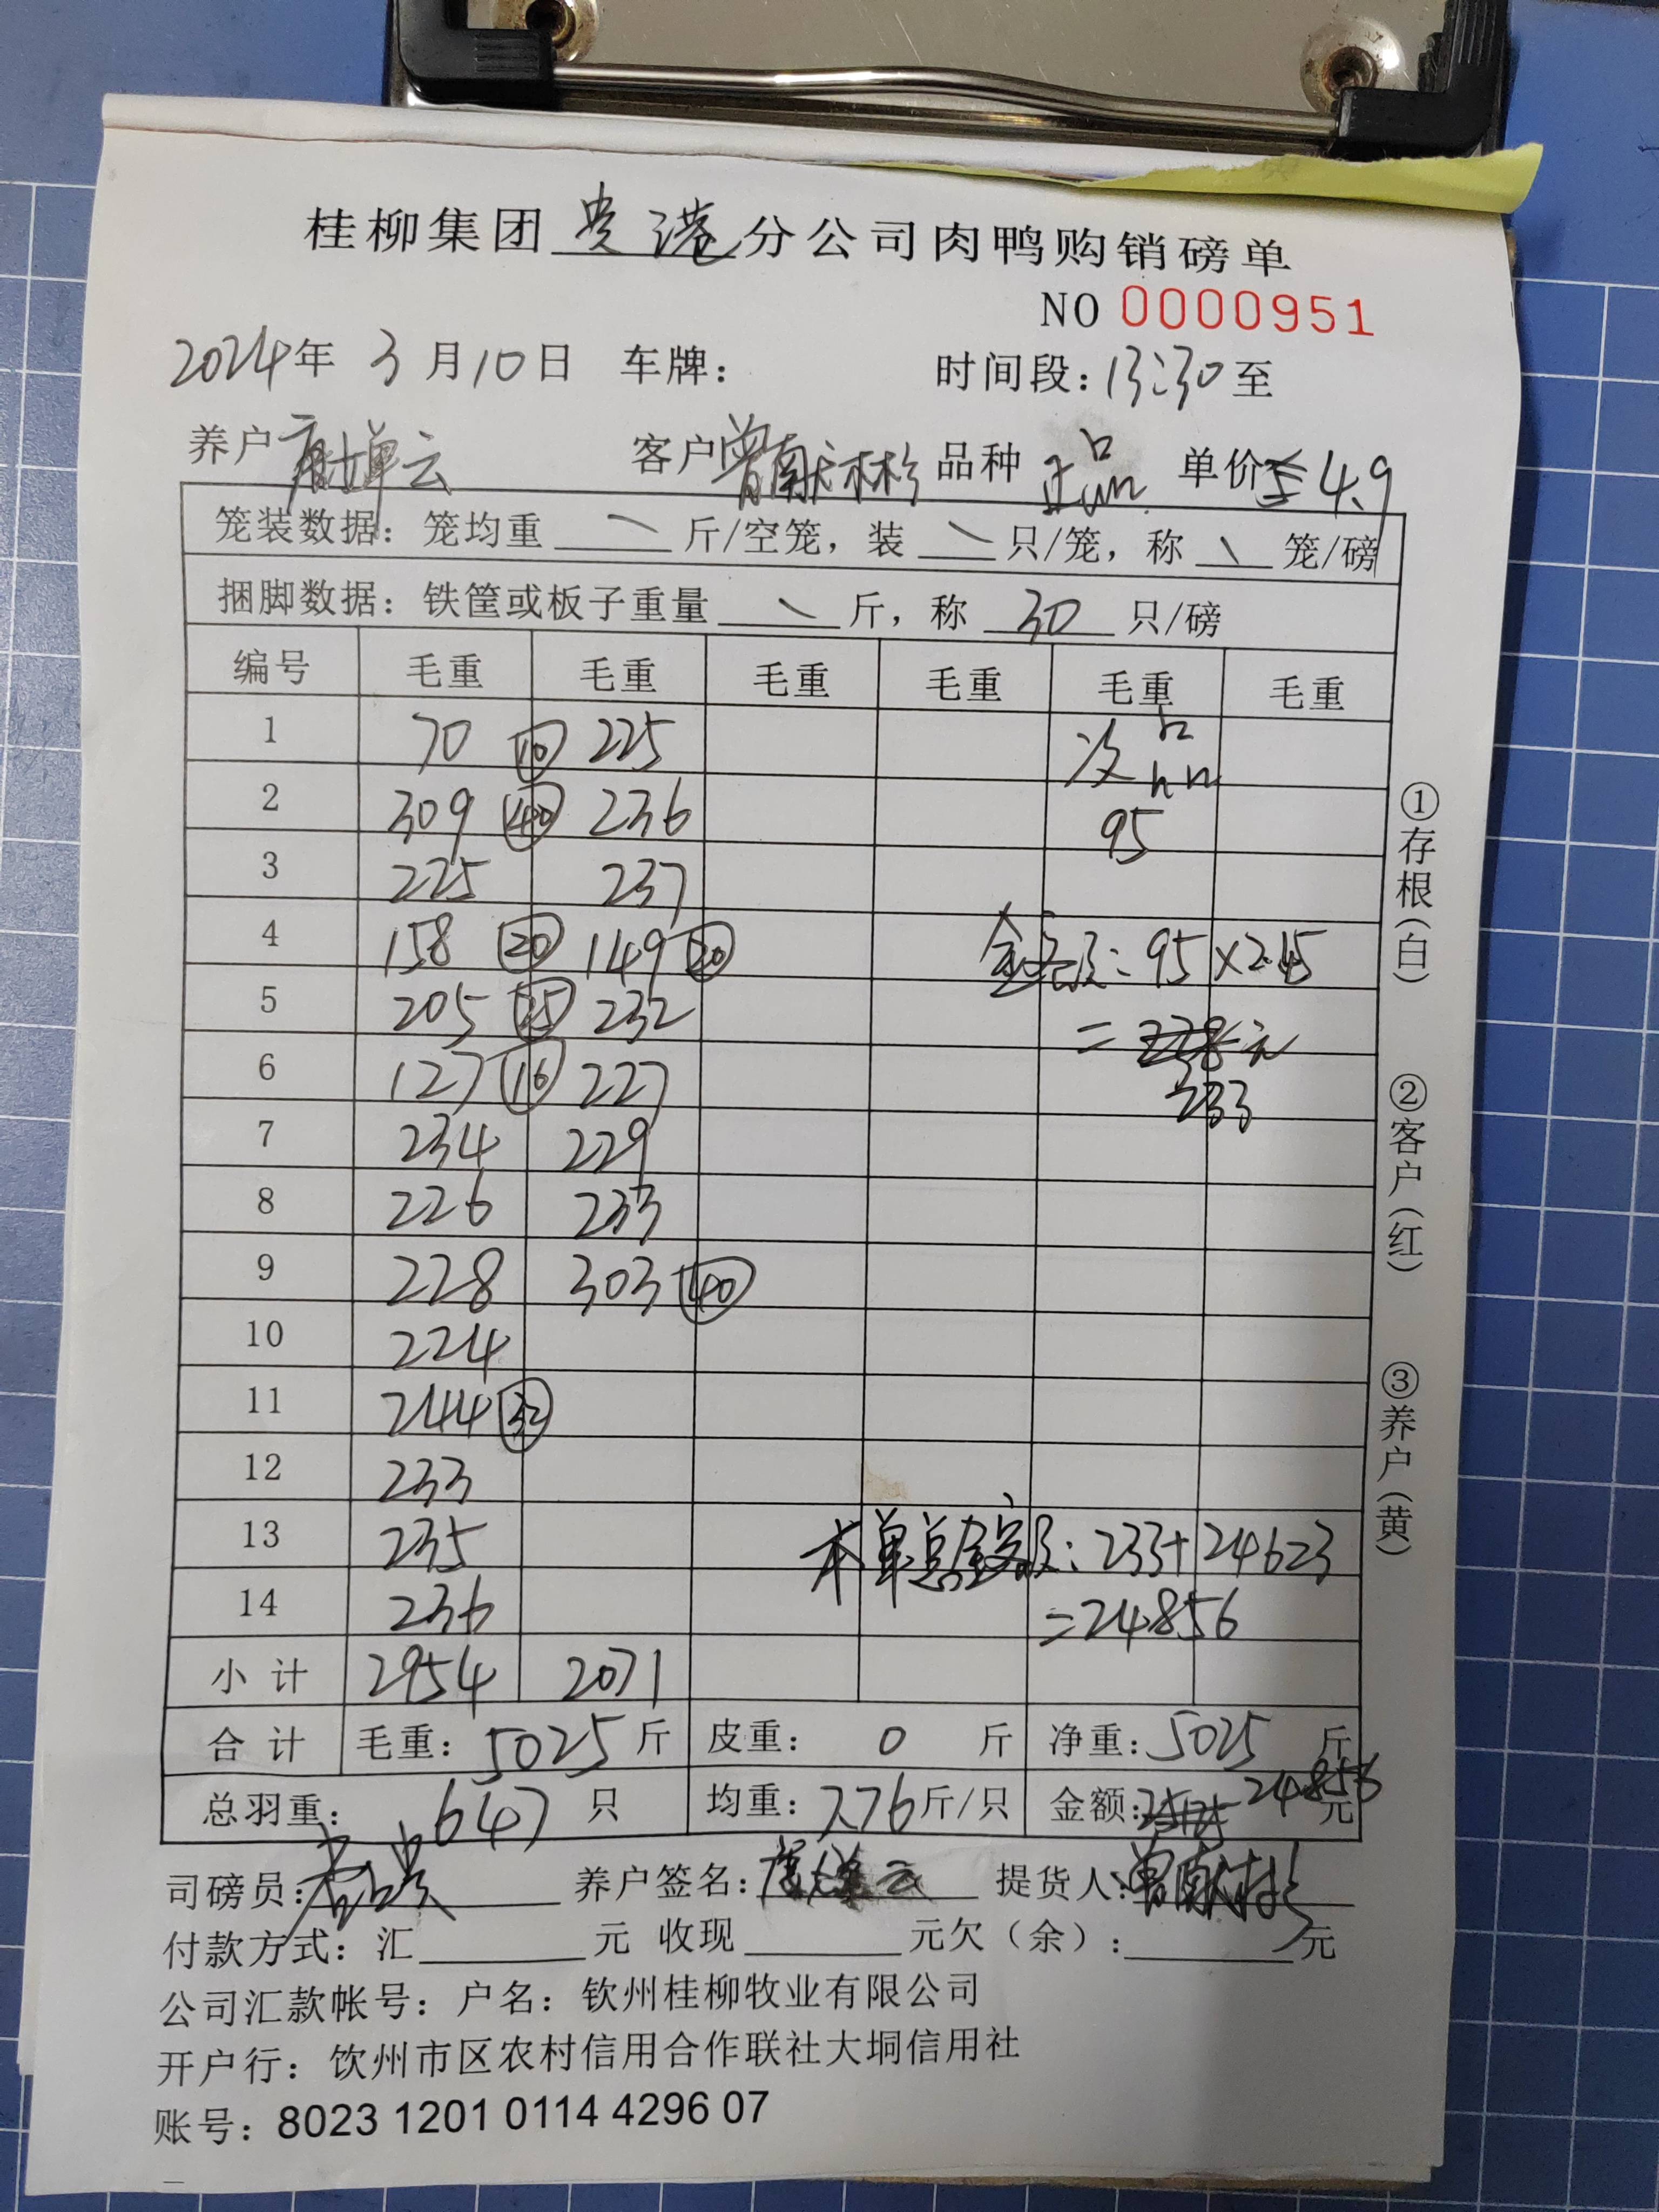 桂柳集团 贵港 分公司肉鸭购销磅单
NO 0000951
2024年 3月10日 车牌： 时间段：13:30至
养户 云 客户 曾献彬 品种 正品 单价 4.9
笼装数据：笼均重 \ 斤/空笼，装 \ 只/笼，称 \ 笼/磅
捆脚数据：铁筐或板子重量 \ 斤，称 30 只/磅
编号 毛重 毛重 毛重 毛重 毛重 毛重
1 70 ⑩ 225 次品
2 309 ㊵ 236 95
3 225 237
4 158 ⑳ 149 ⑳ 金额：95×2.45
5 205 ㉕ 232 =238元
6 127 ⑯ 227 233
7 234 229
8 226 233
9 228 303 ㊵
10 224
11 244 ㉜
12 233
13 235 本单总金额：233+24623
14 236 =24856
小计 2954 2071
合计 毛重：5025斤 皮重：0斤 净重：5025斤
总羽重：647只 均重：7.76斤/只 金额：24856元
司磅员： 养户签名： 云 提货人：曾献彬
付款方式：汇 元 收现 元欠（余）： 元
公司汇款帐号：户名：钦州桂柳牧业有限公司
开户行：钦州市区农村信用合作联社大垌信用社
账号：8023 1201 0114 4296 07
①存根（白） ②客户（红） ③养户（黄）